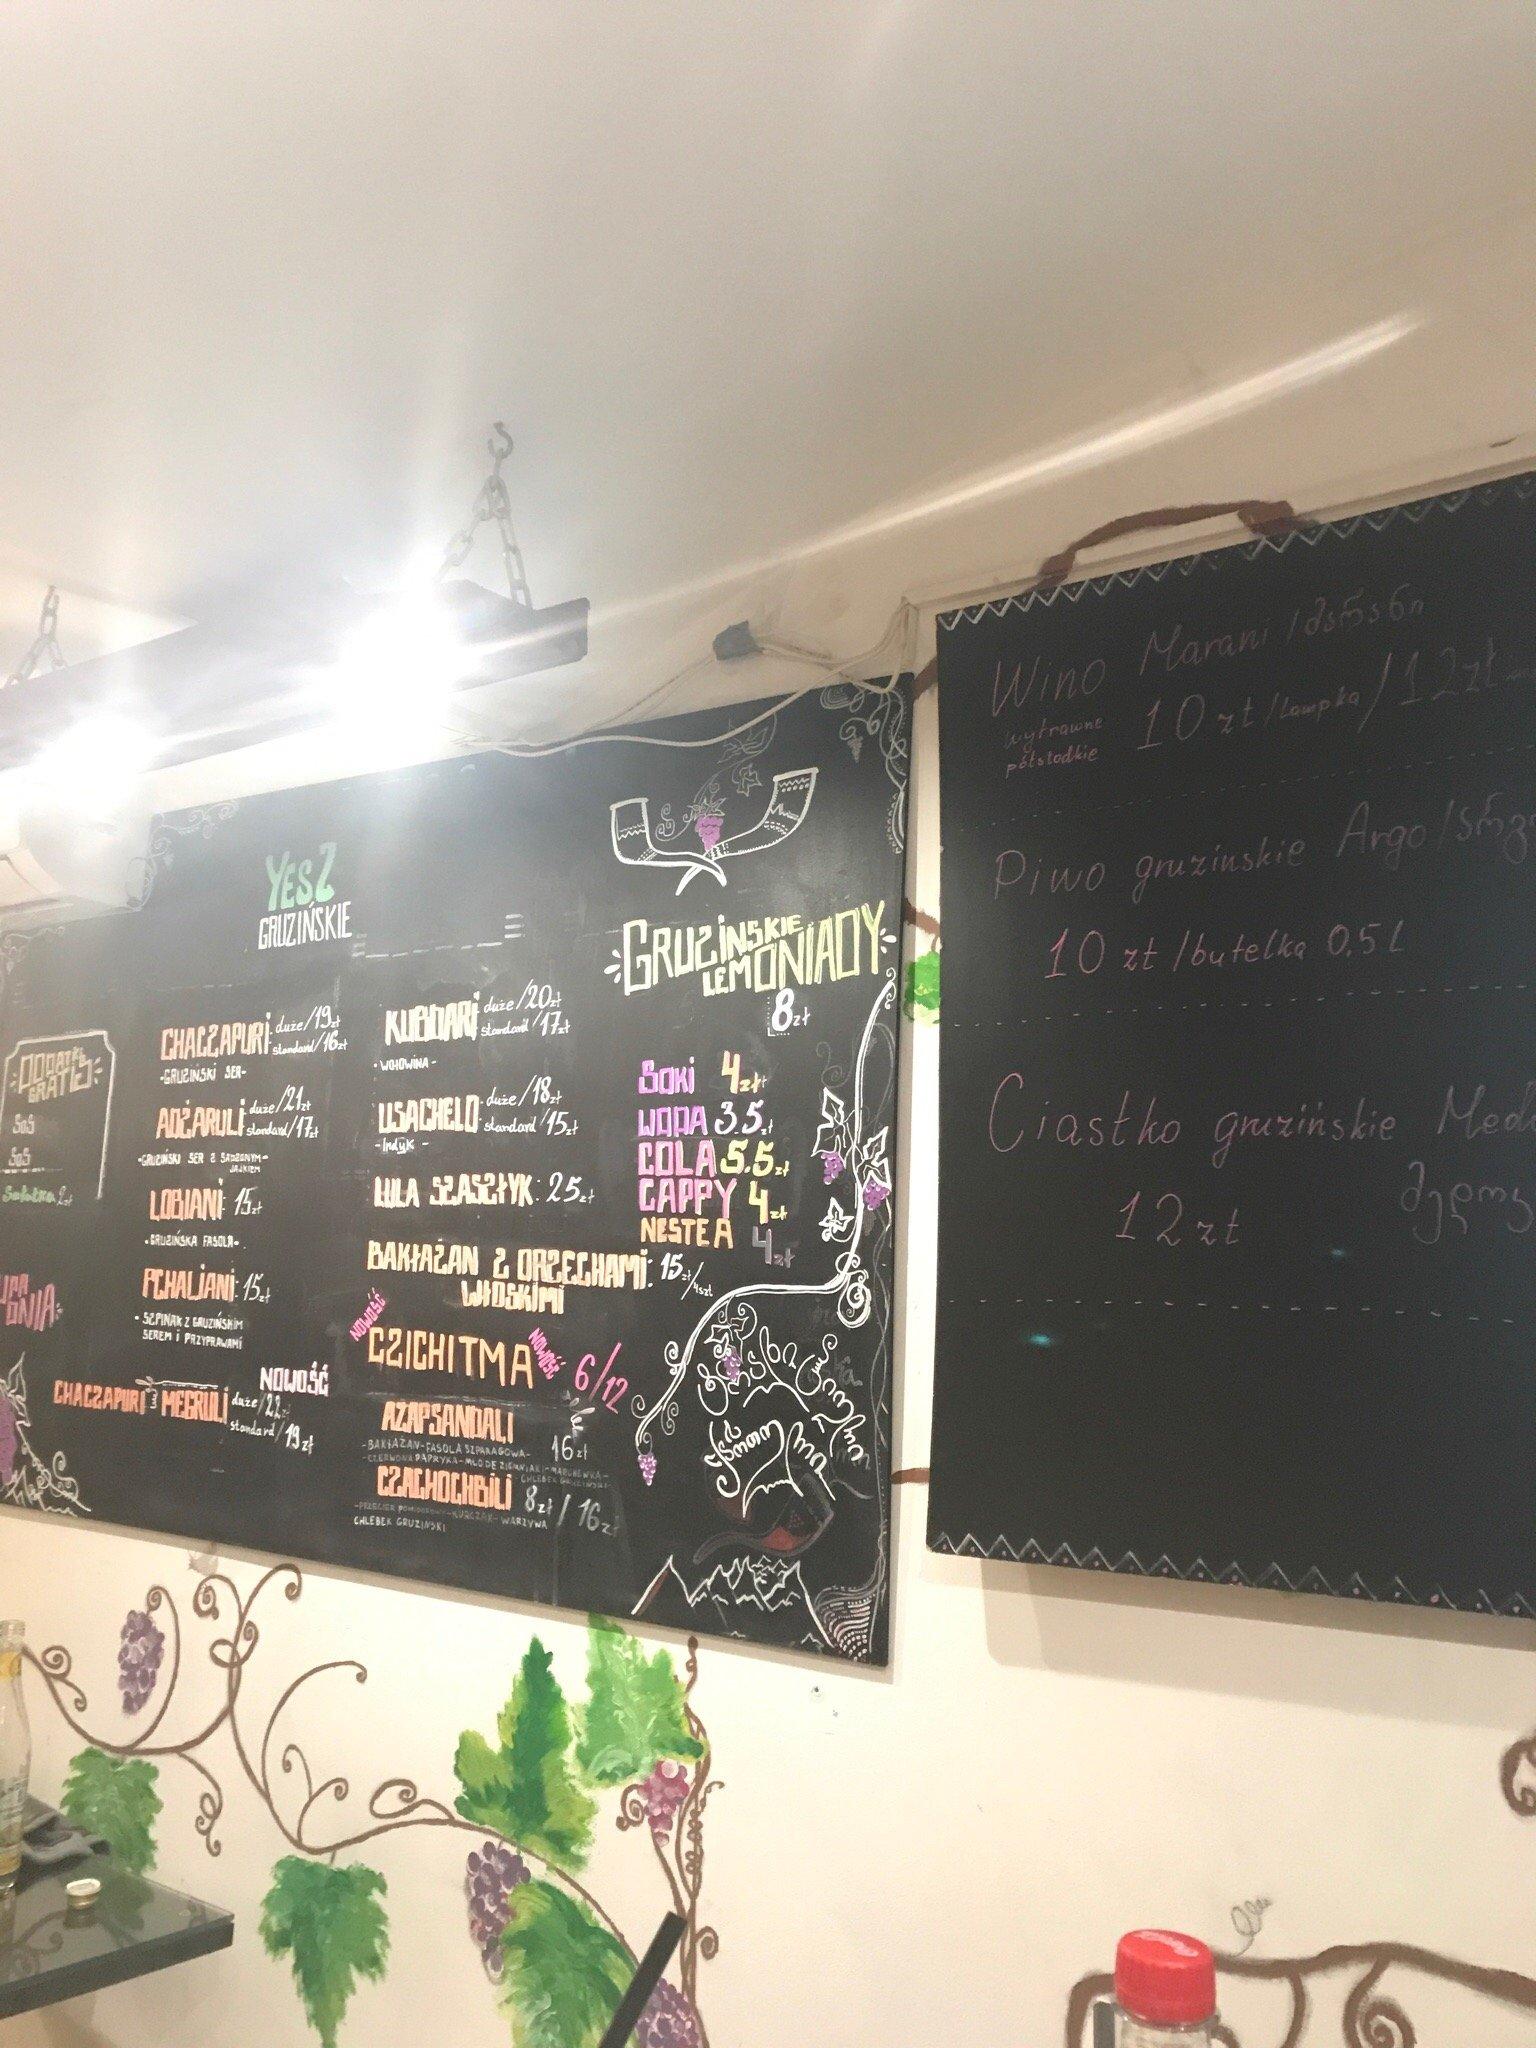 YESZ
GRUZIŃSKIE
DODATKI
GRATIS
SOS
SOS
2zł
CHACZAPURI duże/19zł
standard/16zł
-GRUZIŃSKI SER-
ADŻARULI duże/21zł
standard/17zł
-GRUZIŃSKI SER Z SADZONYM-
JAJKIEM
LOBIANI 15zł
-GRUZIŃSKA FASOLA-
PCHALJANI: 15zł
-SZPINAK Z GRUZIŃSKIM
SEREM I PRZYPRAWAMI
NOWOŚĆ
CHACZAPURI MEGRULI duże/22zł
standard/19zł
KUBDARI duże/20zł
standard/17zł
-WOŁOWINA-
USACHELO duże/18zł
standard/15zł
-Indyk-
LULA SZASZŁYK: 25zł
BAKŁAŻAN Z ORZECHAMI: 15zł/4szt
WŁOSKIMI
NOWOŚĆ
CZICHITMA NOWOŚĆ 6/12
AZAPSANDALI 16zł
-BAKŁAŻAN-FASOLA SZPARAGOWA-
-CZERWONA PAPRYKA-MŁODE ZIEMNIAKI-MARCHEWKA-
CHLEBEK GRUZIŃSKI-
CZACHOCHBILI 8zł/16zł
-PRZECIER POMIDOROWY-KURCZAK-WARZYWA
CHLEBEK GRUZIŃSKI
GRUZINSKIE
LEMONIADY
8zł
SOKI 4zł
WODA 3.5zł
COLA 5.5zł
CAPPY 4zł
NESTEA 4zł
Wino Marani / მარანი
wytrawne
półsłodkie
10 zł/lampka/12zł
Piwo gruzinskie Argo/
10 zł/butelka 0.5l
Ciastko gruzińskie
12 zł